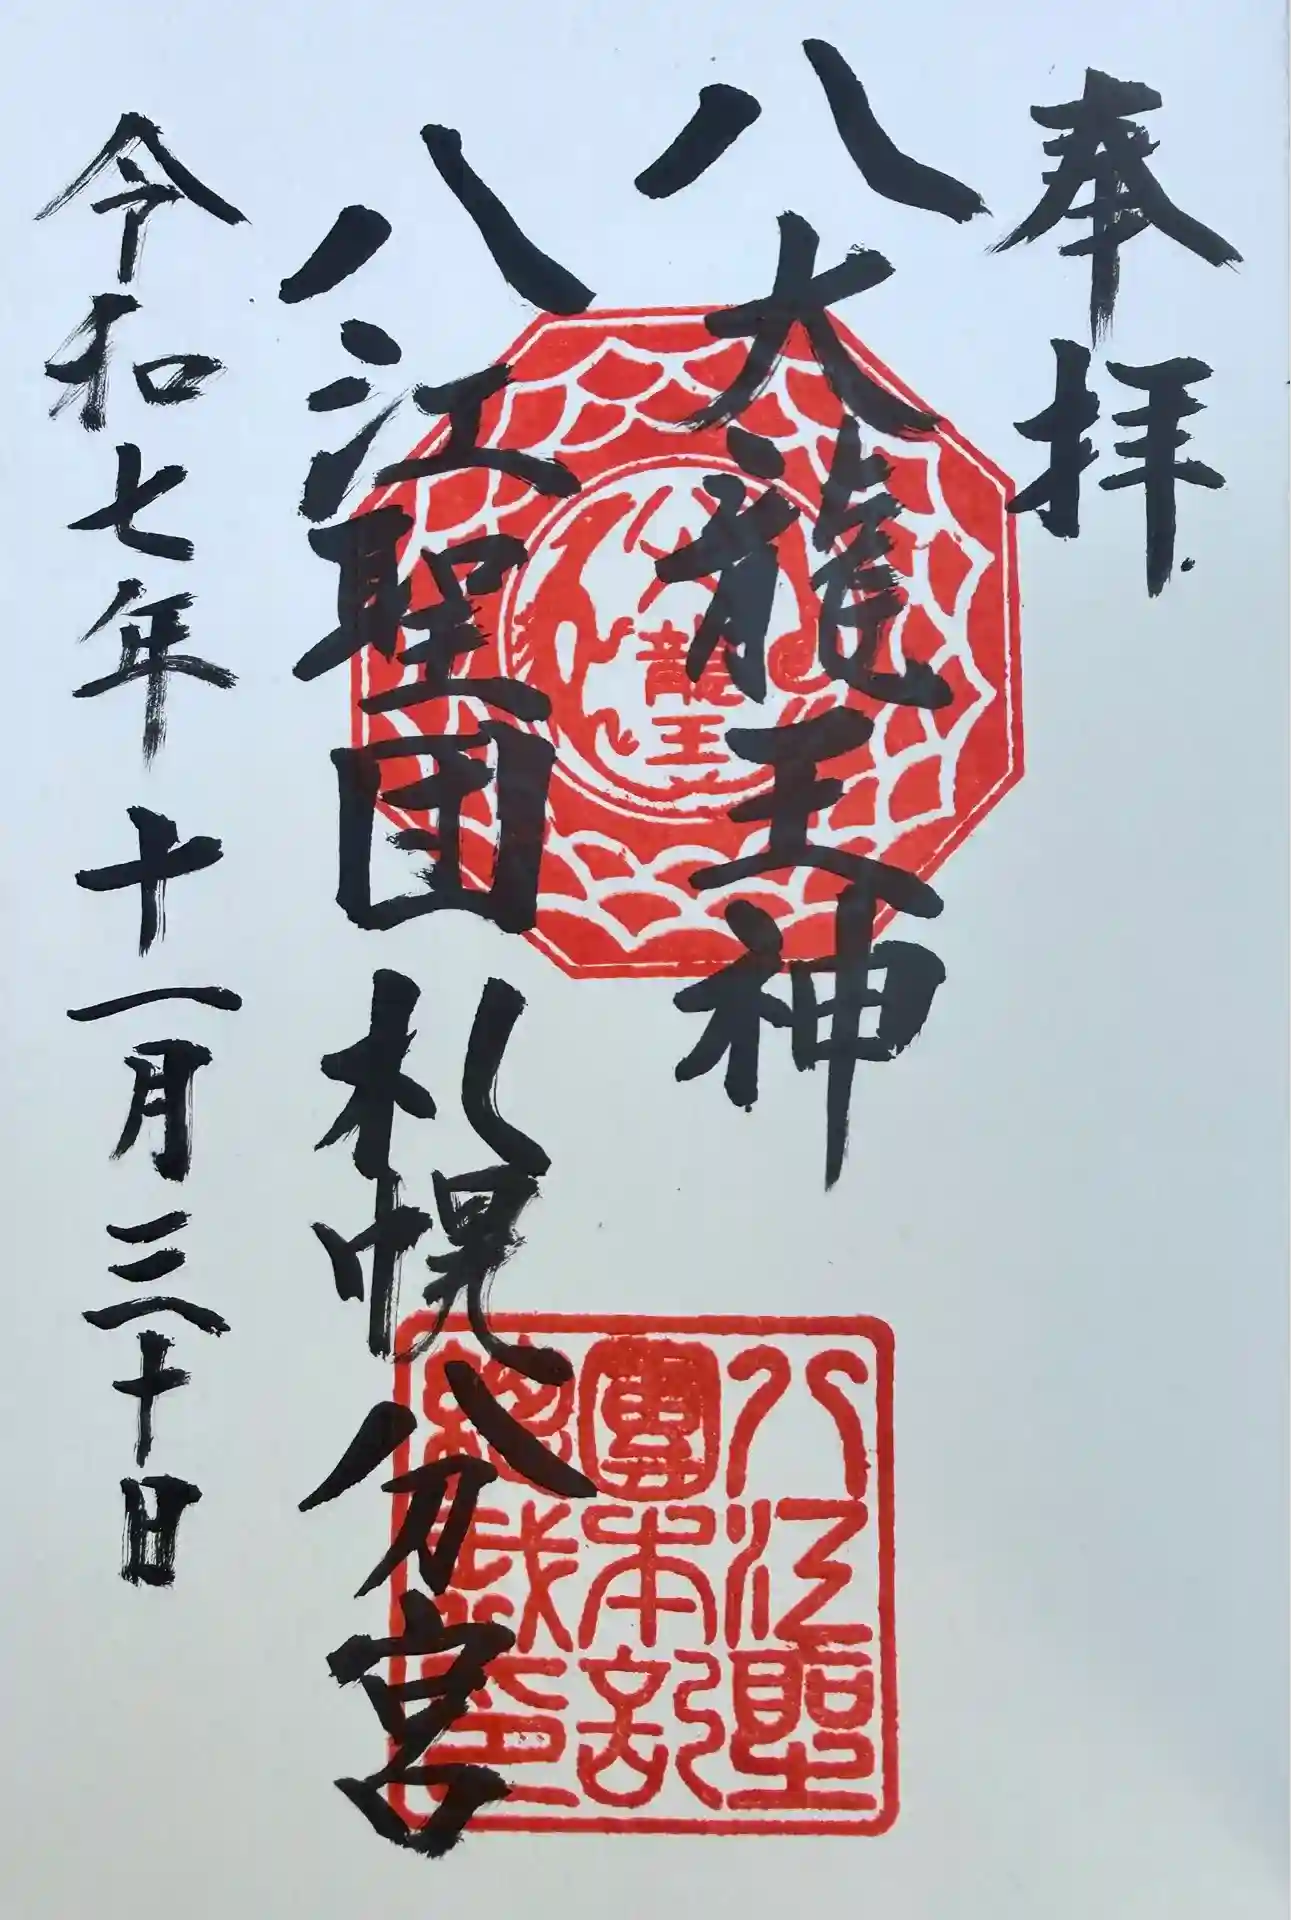 奉拝
八大龍王神
八江聖団 札幌分宮
令和七年 十一月三十日
八大龍王
八江聖
團本部
総裁印